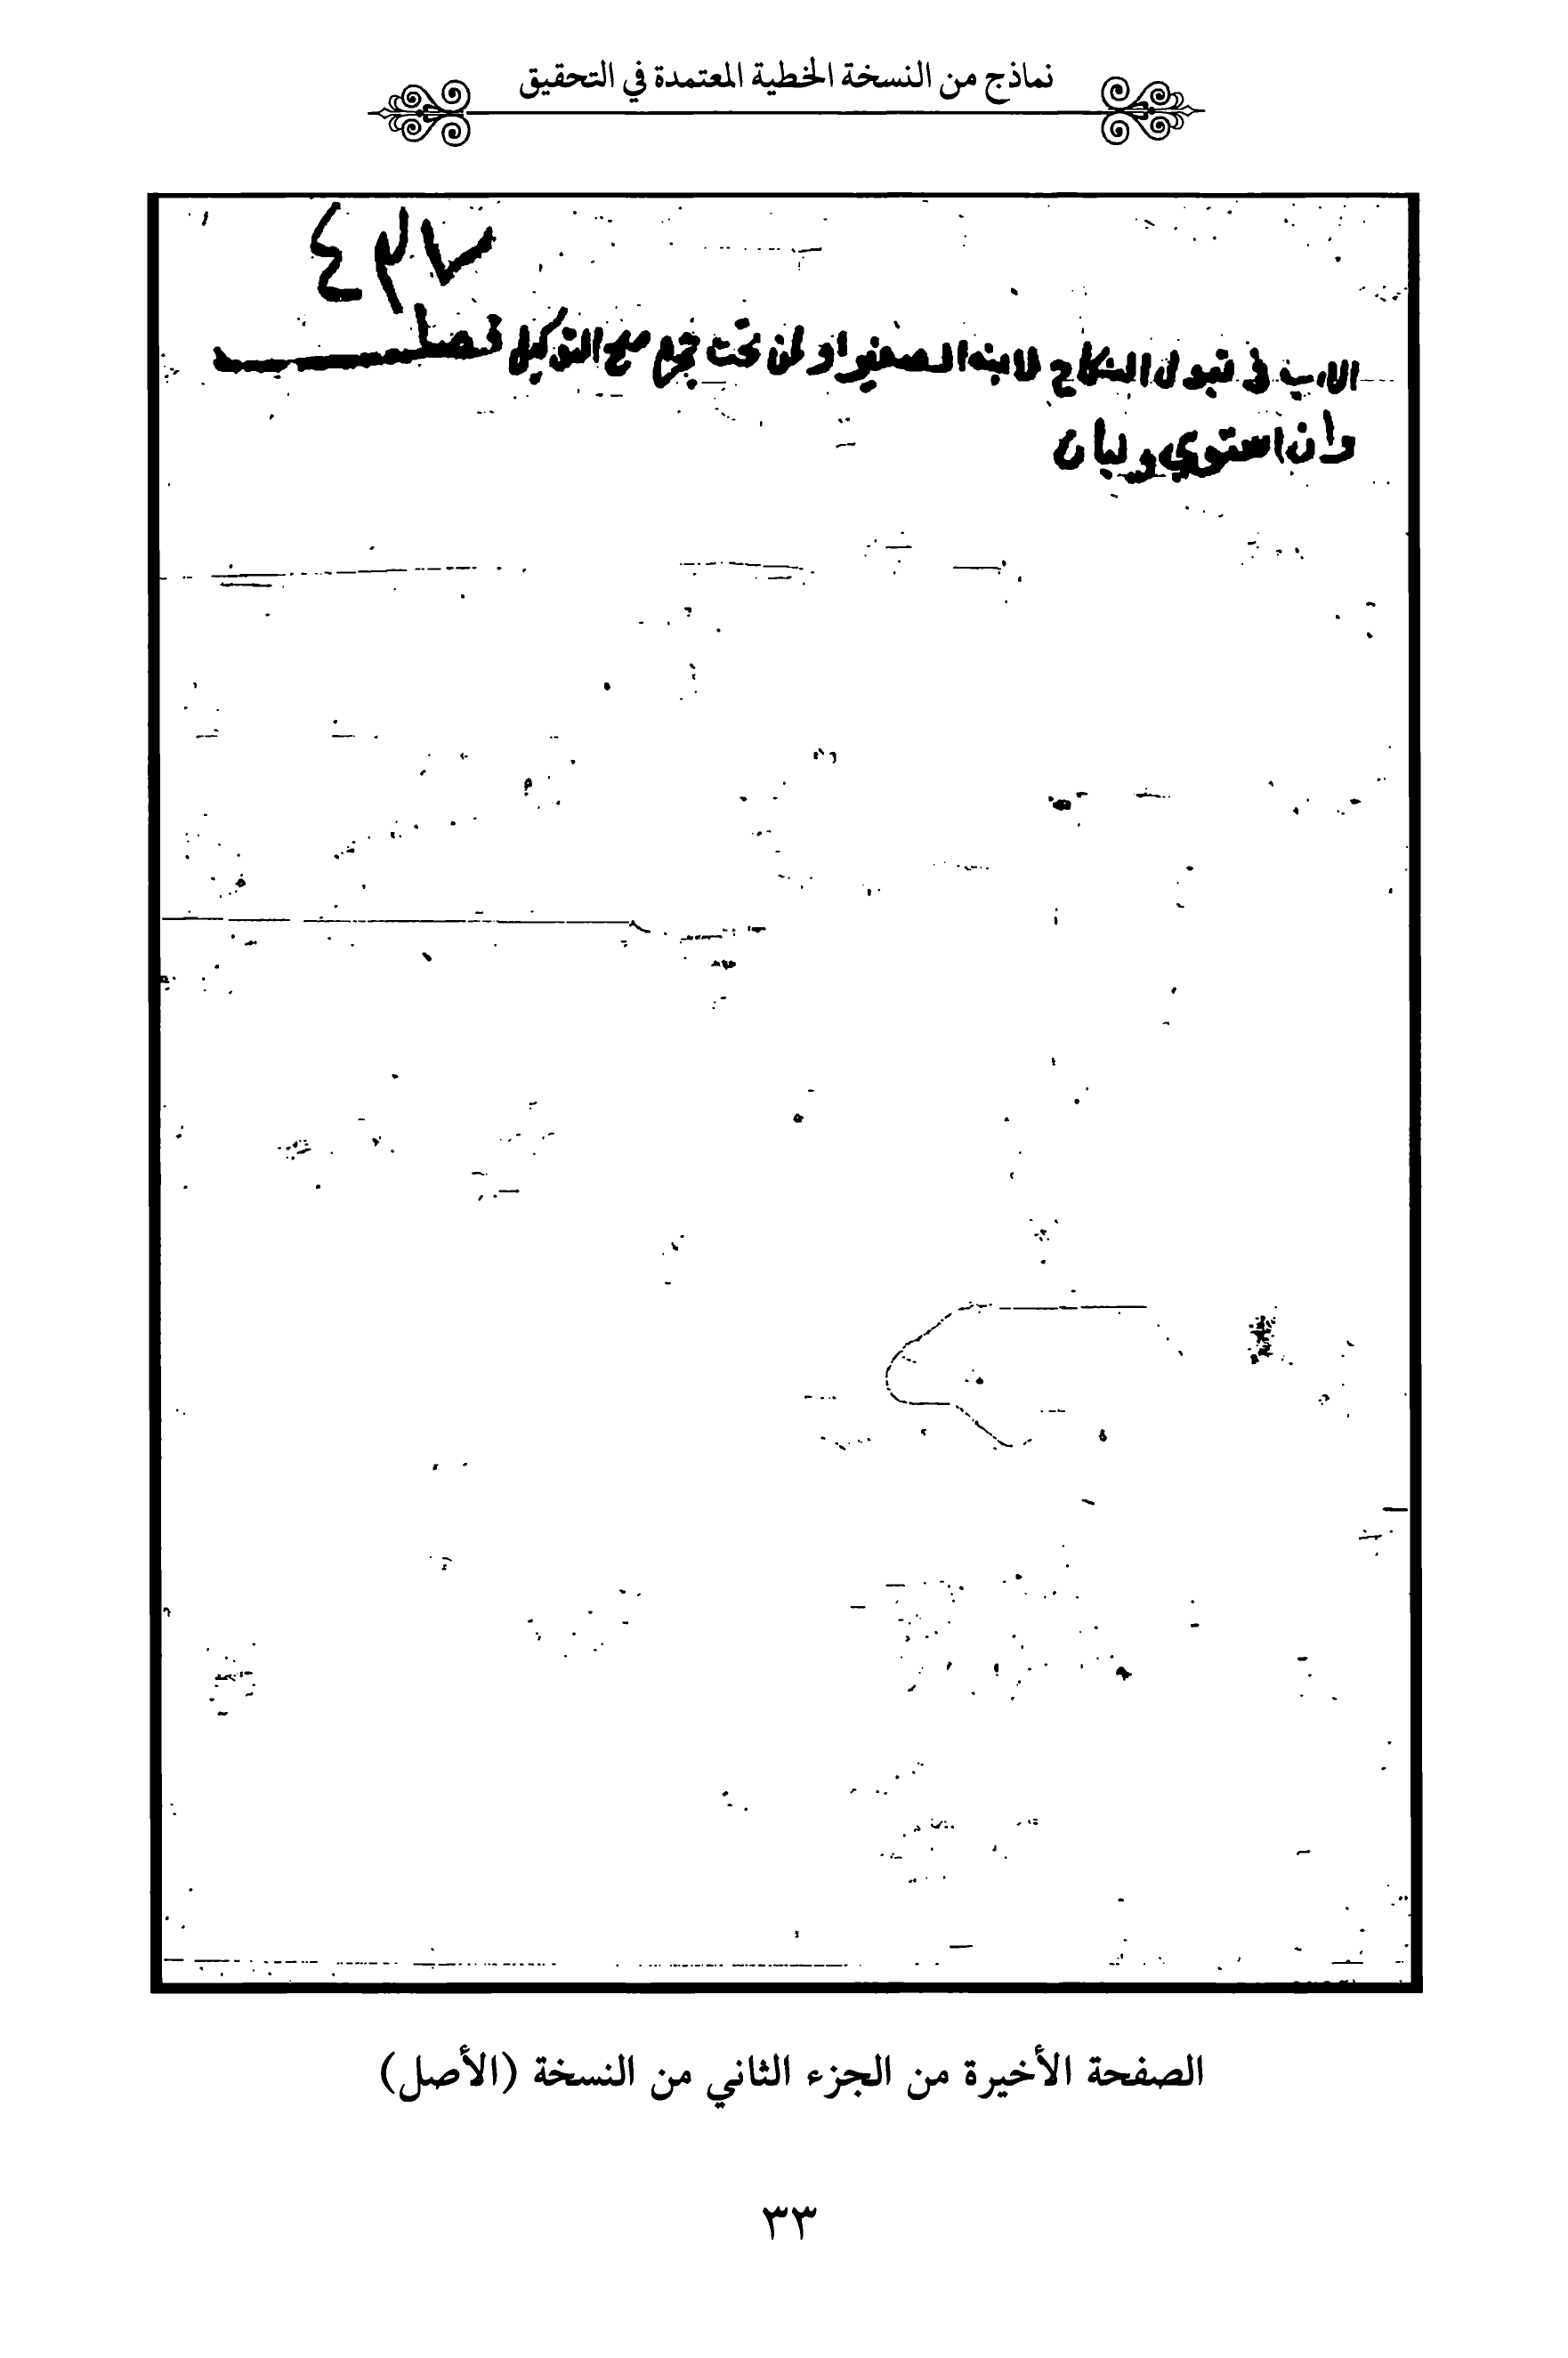 نماذج من النسخة الخطية المعتمدة في التحقيق
٤٣٧
الاب في قبول النكاح لابنه الصغير او لمن تحت حجره صح التوكيل فصل
وان استوي وليان
الصفحة الأخيرة من الجزء الثاني من النسخة (الأصل)
٣٣